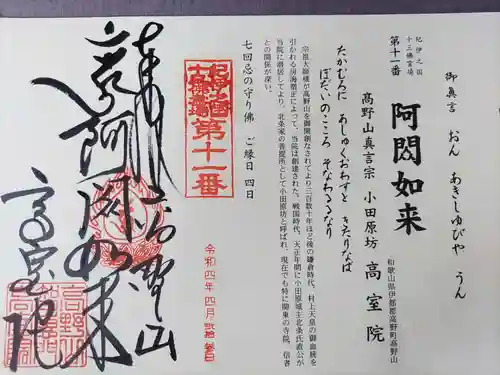 紀伊之国
十三佛霊場
第十一番
阿閦如来
御真言 おん あきしゅびや うん
和歌山県伊都郡高野町高野山
高野山真言宗 小田原坊 高室院
たかむろに あしゅくおわすと きたりなば
ぼだいのこころ そなわるなり
宗祖大師様が高野山を御開創なされてより三百数十年ほど後の鎌倉時代、村上天皇の御血統を
引かれる房海僧正によって、当院は創建された。戦国時代、天正年間に小田原城主北条氏直公が
当院に潜居してより、北条家の菩提所として小田原坊と呼ばれ、現在でも特に関東の寺院、信者
との関係が深い。
七回忌の守り佛 ご縁日 四日
紀伊之国
十三佛霊場
第十一番
令和四年四月
奉拝
高野山
阿閦如来
高室院